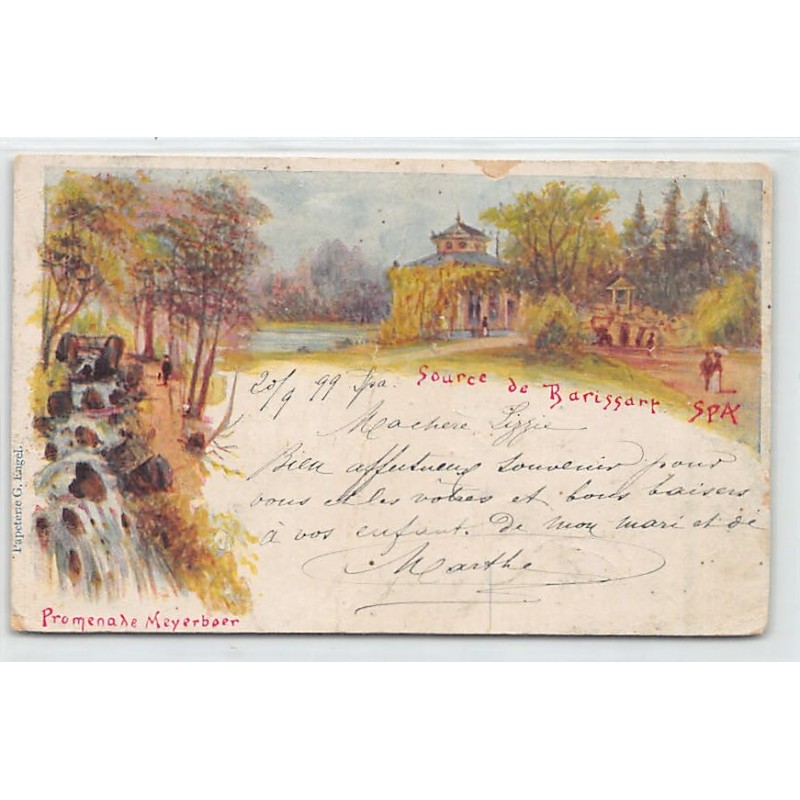 Source de Barissart SPA
20/9 99 Spa.
Ma chère Lizzie
Bien affectueux souvenir pour
vous et les vôtres et bons baisers
à vos enfant. de mon mari et de
Marthe
Promenade Meyerbeer
Papeterie G. Engel.